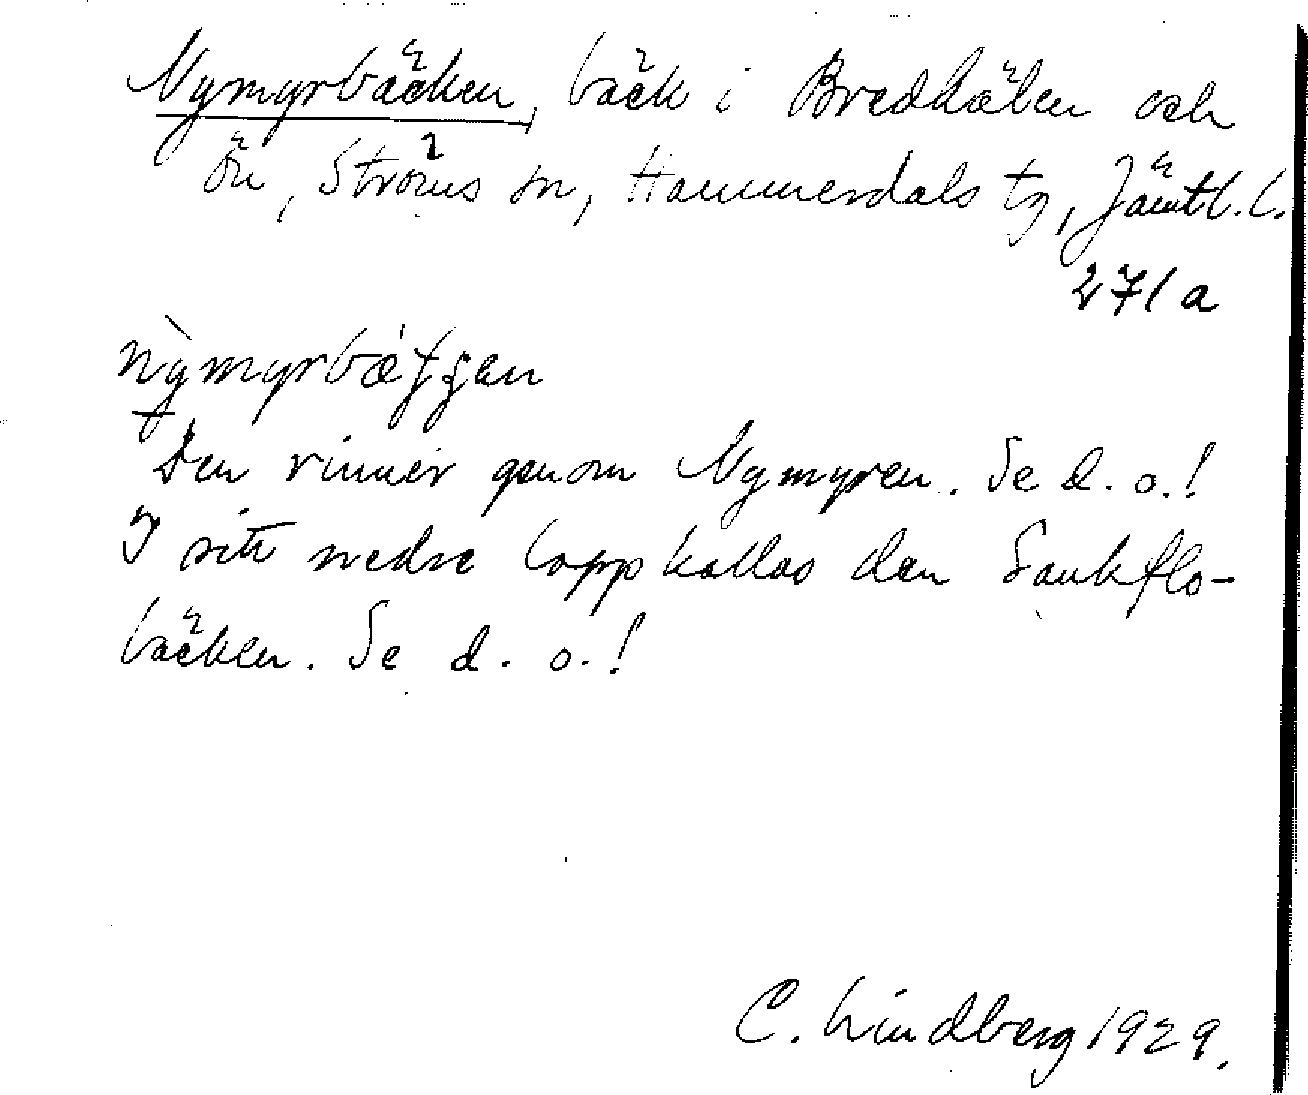 Nymyrbäcken, bäck i Bredkälen och
ön, Ströms sn, Hammerdals tg, Jämtl. l.
271 a
Den rinner genom Nymyren. Se d. o.!
I sitt nedre lopp kallas den Sankflo-
bäcken. Se d. o.!
C. Lindberg 1929.